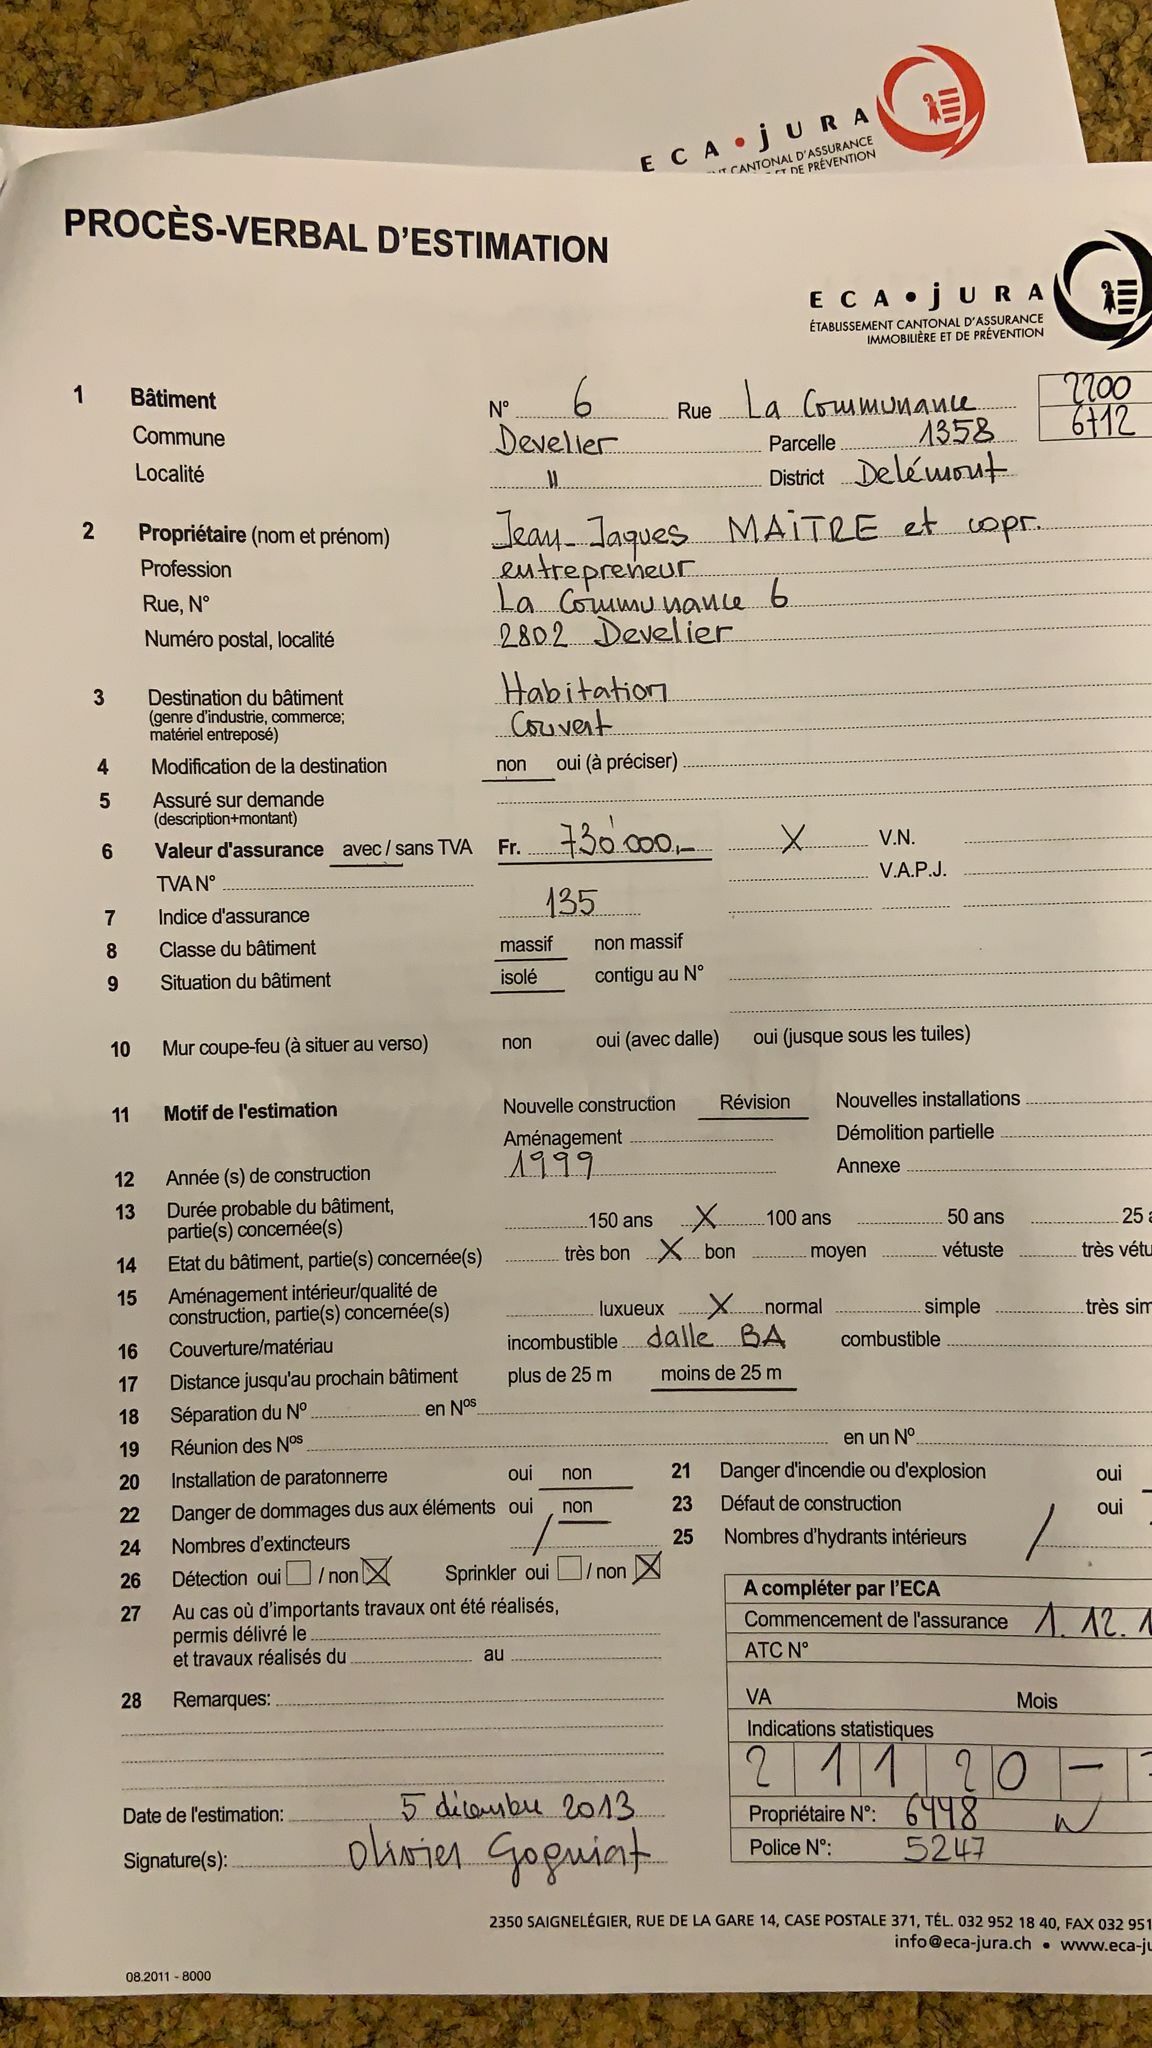 ECA•JURA
CANTONAL D'ASSURANCE
ET DE PRÉVENTION
PROCÈS-VERBAL D'ESTIMATION
ECA•JURA
ÉTABLISSEMENT CANTONAL D'ASSURANCE
IMMOBILIÈRE ET DE PRÉVENTION
1 Bâtiment N° 6 Rue La Communance 2200
Commune Develier Parcelle 1358 6712
Localité " District Delémont
2 Propriétaire (nom et prénom) Jean-Jaques MAITRE et copr.
Profession entrepreneur
Rue, N° La Communance 6
Numéro postal, localité 2802 Develier
3 Destination du bâtiment Habitation
(genre d'industrie, commerce; Couvert
matériel entreposé)
4 Modification de la destination non oui (à préciser)
5 Assuré sur demande
(description+montant)
6 Valeur d'assurance avec / sans TVA Fr. 730'000.- X V.N.
TVA N° V.A.P.J.
7 Indice d'assurance 135
8 Classe du bâtiment massif non massif
9 Situation du bâtiment isolé contigu au N°
10 Mur coupe-feu (à situer au verso) non oui (avec dalle) oui (jusque sous les tuiles)
11 Motif de l'estimation Nouvelle construction Révision Nouvelles installations
Aménagement Démolition partielle
12 Année (s) de construction 1999 Annexe
13 Durée probable du bâtiment,
partie(s) concernée(s) 150 ans X 100 ans 50 ans 25
14 Etat du bâtiment, partie(s) concernée(s) très bon X bon moyen vétuste très vétu
15 Aménagement intérieur/qualité de
construction, partie(s) concernée(s) luxueux X normal simple très sim
16 Couverture/matériau incombustible dalle BA combustible
17 Distance jusqu'au prochain bâtiment plus de 25 m moins de 25 m
18 Séparation du N° en Nos
19 Réunion des Nos en un N°
20 Installation de paratonnerre oui non 21 Danger d'incendie ou d'explosion oui
22 Danger de dommages dus aux éléments oui non 23 Défaut de construction oui
24 Nombres d'extincteurs / 25 Nombres d'hydrants intérieurs /
26 Détection oui / non X Sprinkler oui / non X
27 Au cas où d'importants travaux ont été réalisés,
permis délivré le
et travaux réalisés du au
28 Remarques:
A compléter par l'ECA
Commencement de l'assurance 1. 12. 1
ATC N°
VA Mois
Indications statistiques
2 1 1 2 0 -
Propriétaire N°: 6448
Police N°: 5247
Date de l'estimation: 5 décembre 2013
Signature(s): Olivier Gogniat
2350 SAIGNELÉGIER, RUE DE LA GARE 14, CASE POSTALE 371, TÉL. 032 952 18 40, FAX 032 951
info@eca-jura.ch • www.eca-ju
08.2011 - 8000